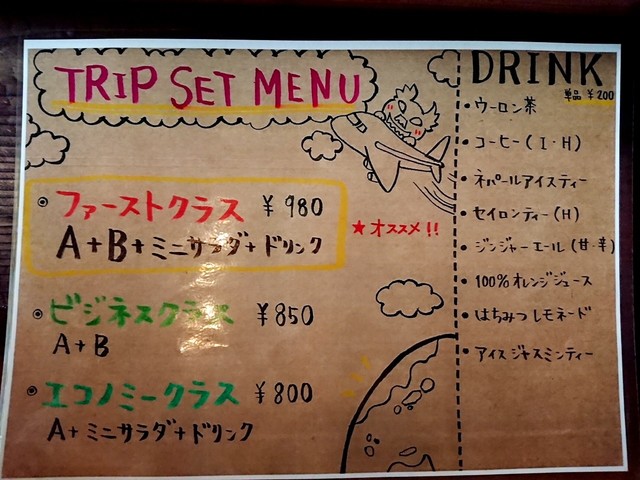 TRIP SET MENU
ファーストクラス ¥980
A+B+ミニサラダ+ドリンク
★オススメ!!
ビジネスクラス ¥850
A+B
エコノミークラス ¥800
A+ミニサラダ+ドリンク
DRINK
単品 ¥200
・ウーロン茶
・コーヒー(I・H)
・ネパールアイスティー
・セイロンティー(H)
・ジンジャーエール(甘・辛)
・100%オレンジジュース
・はちみつレモネード
・アイスジャスミンティー